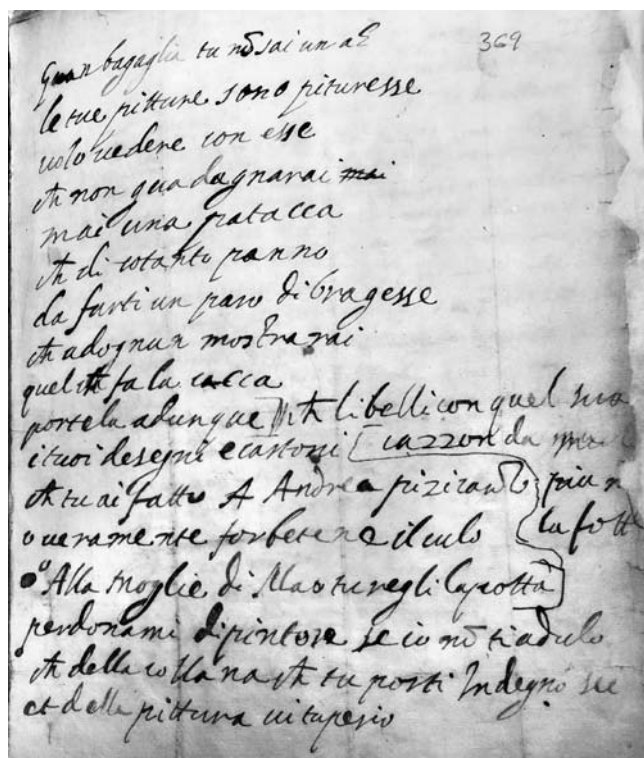 369
Gioan bagaglia tu nõ sai un ah
le tue pitture sono pituresse
uolo uedere con esse
ch non guadagnarai mai
mai una patacca
ch di cotanto panno
da farti un paro di bragesse
ch adognun mostrarai
quel ch fa la cacca
portela adunque ch libelli con quel suo
i tuoi desegni e cartoni cazzon da
ch tu ai fatto A Andrea pizicarolo piu n
o ueramente forbetene il culo la fott
o Alla moglie di Mao turegli la potta
perdonami dipintore se io nõ ti adulo
ch della collana ch tu porti Indegno sei
et della pittura uituperio